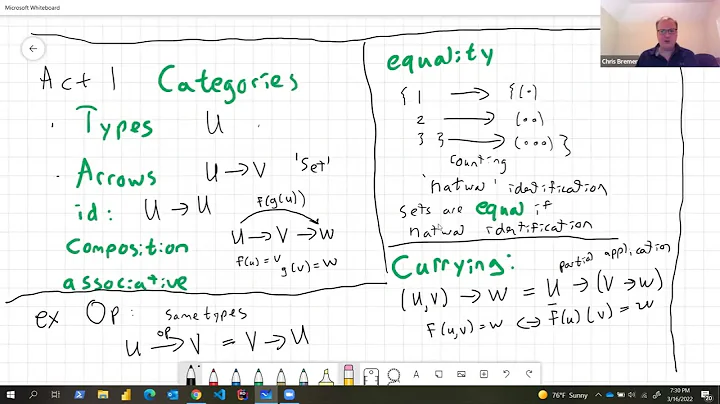 Microsoft Whiteboard
Chris Bremer
Act 1 Categories
Types U
Arrows U → V 'Set'
id: U → U
f(g(u))
Composition U → V → W
f(u) = v g(v) = w
associative
ex Op: same types
U →op V = V → U
equality
{ 1 → {(•)
2 → (••)
3 } → (•••) }
counting
'natural' identification
sets are equal if
natural identification
Currying: partial application
(U, V) → W = U → (V → W)
f(u,v) = w ⟺ f(u)(v) = w
76°F Sunny
7:30 PM
3/16/2022
20